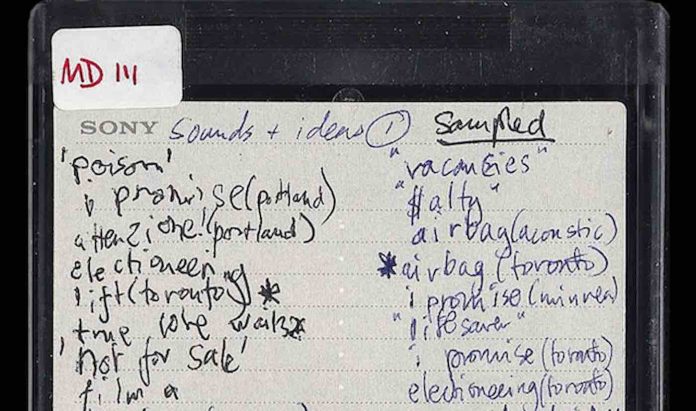 MD 111
SONY sounds + ideas ① sampled
'poison'
i promise (portland)
attenzione! (portland)
electioneering
lift (toronto) *
true love waits *
'Not for Sale'
film a
"vacancies"
"$alty"
airbag (acoustic)
*airbag (toronto)
i promise (minnea)
"lifesaver"
i promise (toronto)
electioneering (toronto)